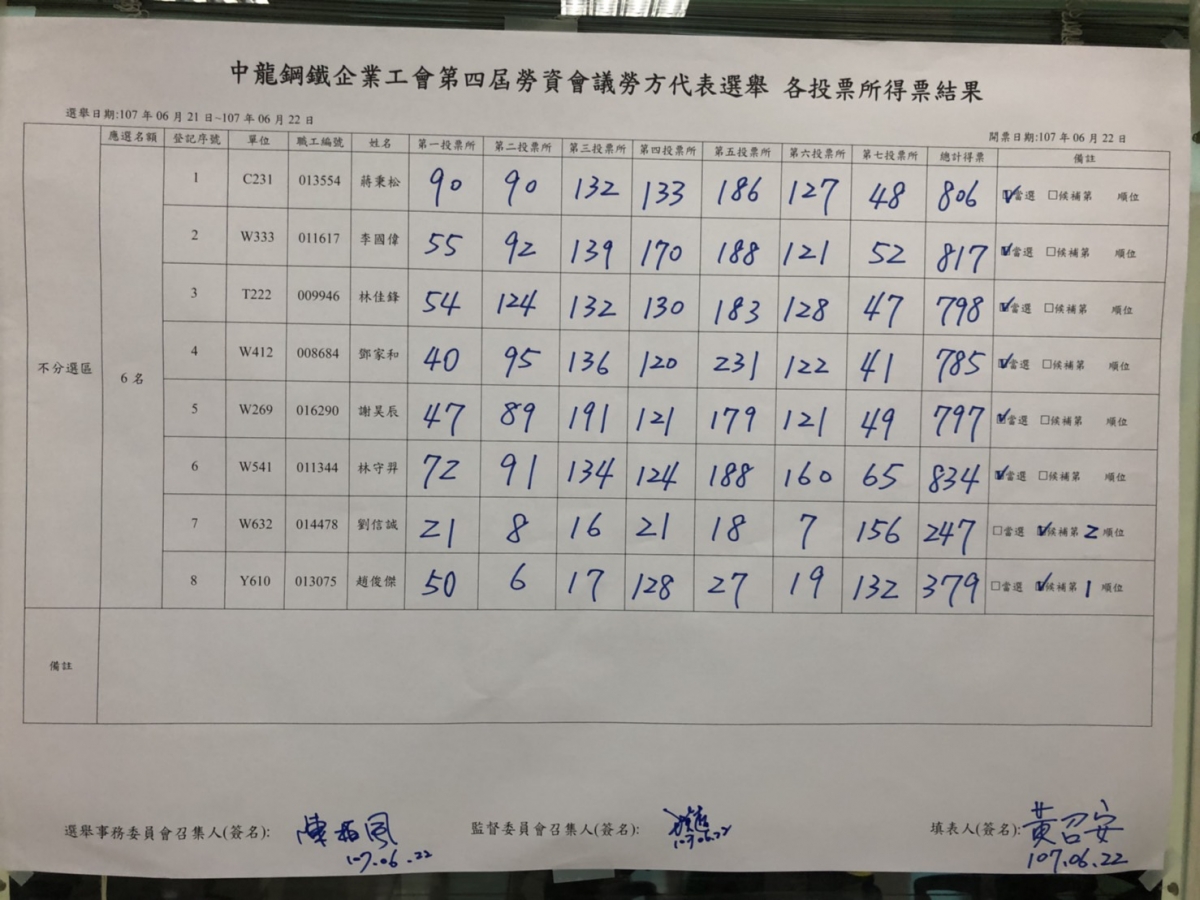 中龍鋼鐵企業工會第四屆勞資會議勞方代表選舉 各投票所得票結果
選舉日期:107 年 06 月 21 日~107 年 06 月 22 日
開票日期:107 年 06 月 22 日
應選名額 登記序號 單位 職工編號 姓名 第一投票所 第二投票所 第三投票所 第四投票所 第五投票所 第六投票所 第七投票所 總計得票 備註
1 C231 013554 蔣秉松 90 90 132 133 186 127 48 806 ☑當選 □候補第 順位
2 W333 011617 李國偉 55 92 139 170 188 121 52 817 ☑當選 □候補第 順位
3 T222 009946 林佳鋒 54 124 132 130 183 128 47 798 ☑當選 □候補第 順位
4 W412 008684 鄧家和 40 95 136 120 231 122 41 785 ☑當選 □候補第 順位
不分選區 6 名
5 W269 016290 謝昊辰 47 89 191 121 179 121 49 797 ☑當選 □候補第 順位
6 W541 011344 林守羿 72 91 134 124 188 160 65 834 ☑當選 □候補第 順位
7 W632 014478 劉信誠 21 8 16 21 18 7 156 247 □當選 ☑候補第 2 順位
8 Y610 013075 趙俊傑 50 6 17 128 27 19 132 379 □當選 ☑候補第 1 順位
備註
選舉事務委員會召集人(簽名): 107.06.22
監督委員會召集人(簽名): 107.06.22
填表人(簽名): 黃召安 107.06.22